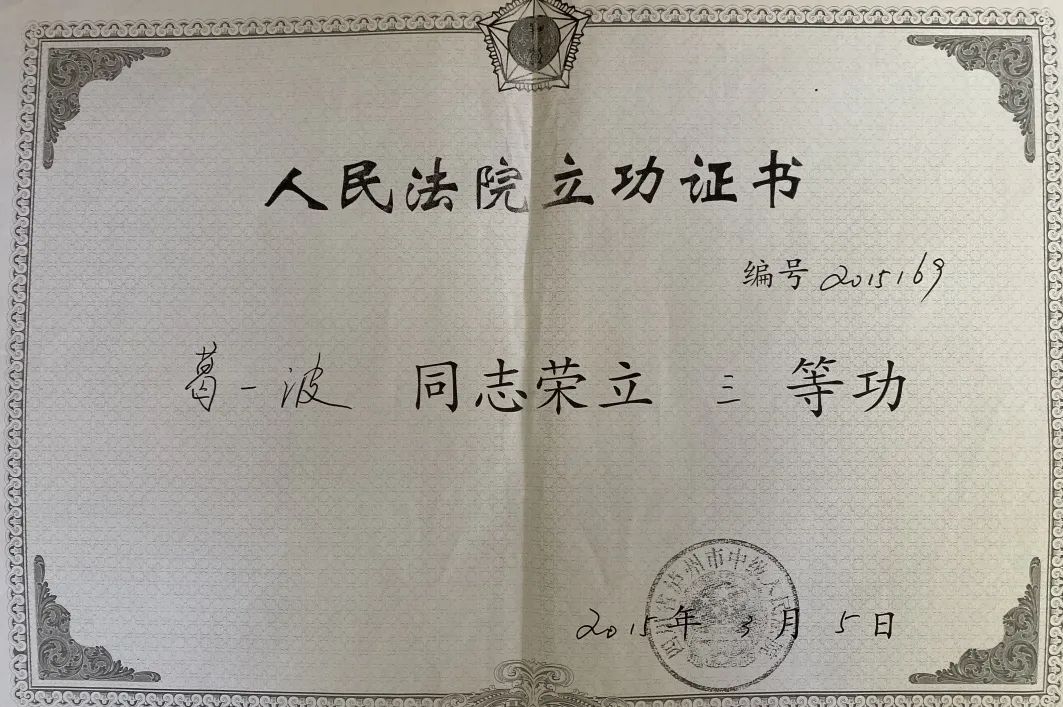 人民法院立功证书
编号 2015169
葛一波 同志荣立 三 等功
四川省泸州市中级人民法院
2015年 3月 5日